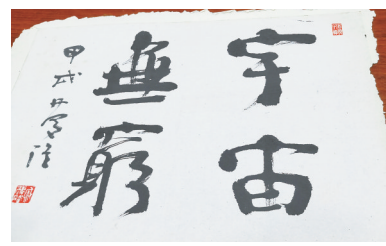 宇宙
無窮
甲戌